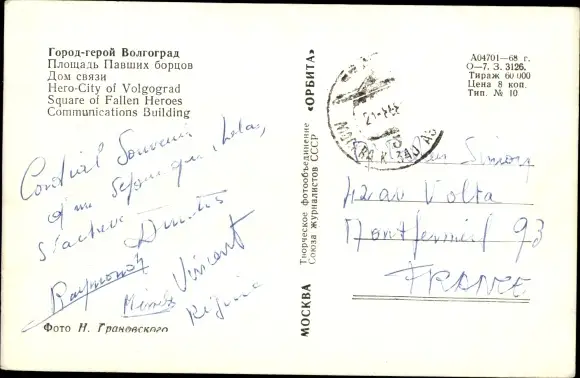 Город-герой Волгоград
Площадь Павших борцов
Дом связи
Hero-City of Volgograd
Square of Fallen Heroes
Communications Building
А04701—68 г.
О—7. З. 3126.
Тираж 60 000
Цена 8 коп.
Тип. № 10
Cordial Souvenir
d'un séjour qui, hélas,
s'achève
Dimitris
Raymond
Vincent
Régine
Фото Н. Грановского
МОСКВА Творческое фотообъединение «ОРБИТА»
Союза журналистов СССР
МОСКВА
Simon
42 av Volta
Montfermeil 93
FRANCE